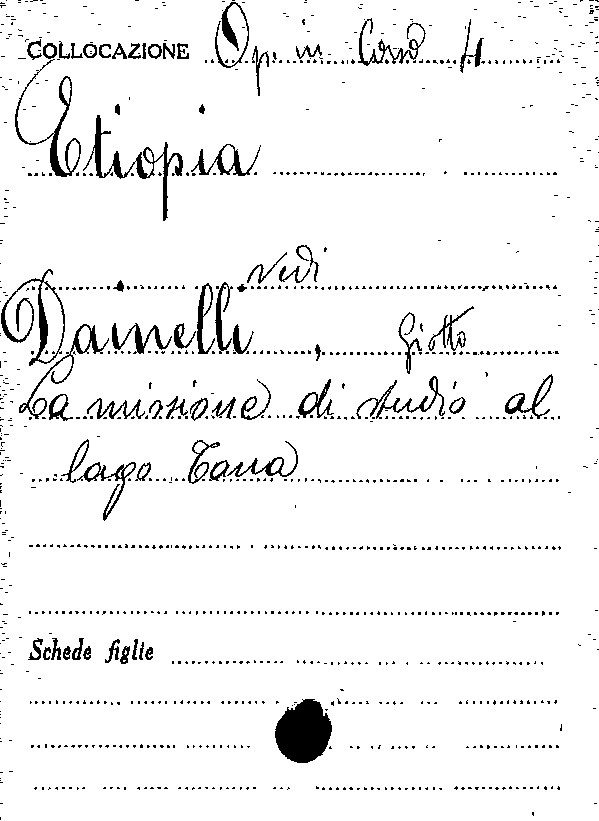 COLLOCAZIONE Op. in Corso 4
Etiopia
vedi
Dainelli, Giotto
La missione di studio al
lago Tana
Schede figlie